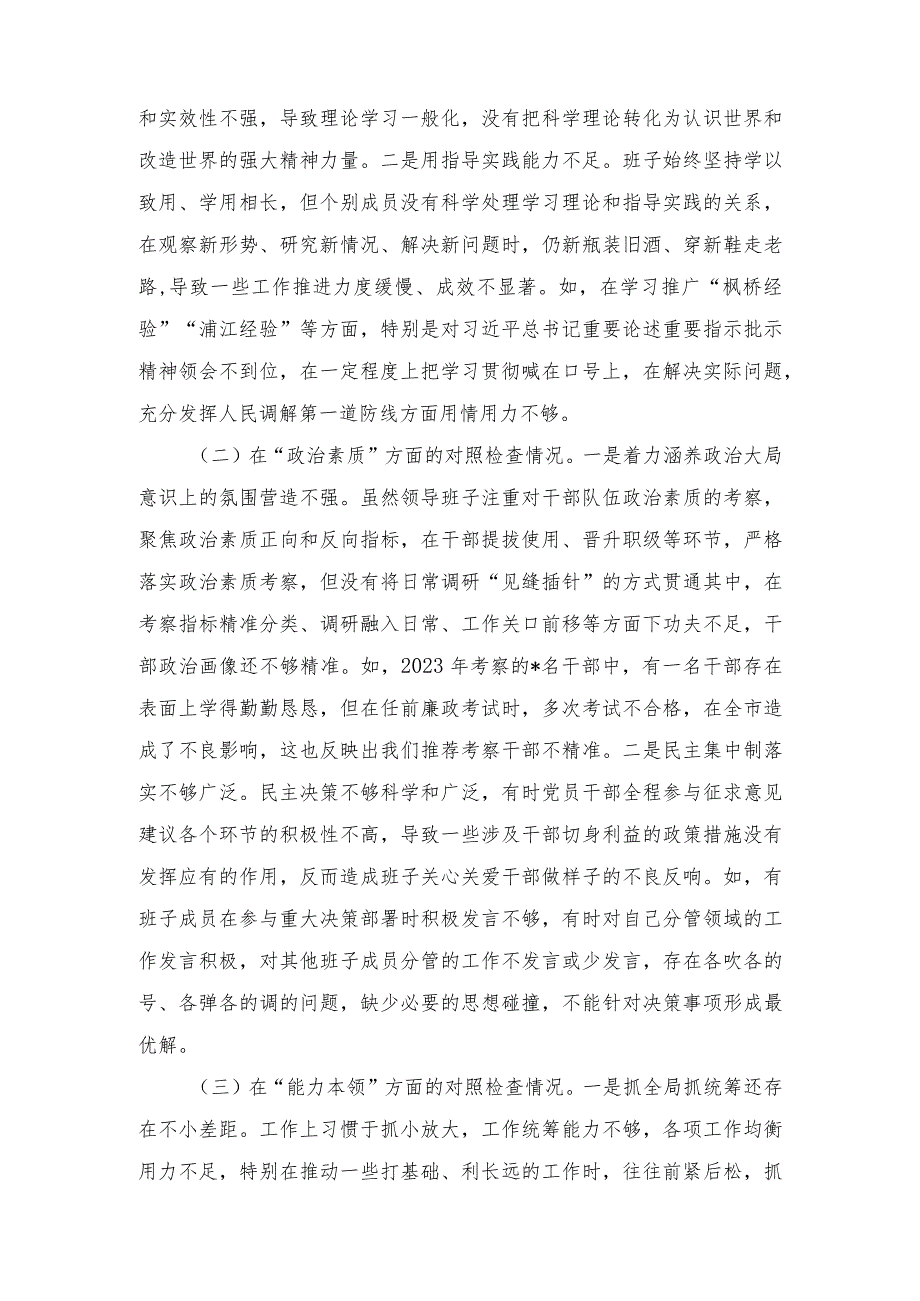 和实效性不强，导致理论学习一般化，没有把科学理论转化为认识世界和
改造世界的强大精神力量。二是用指导实践能力不足。班子始终坚持学以
致用、学用相长，但个别成员没有科学处理学习理论和指导实践的关系，
在观察新形势、研究新情况、解决新问题时，仍新瓶装旧酒、穿新鞋走老
路,导致一些工作推进力度缓慢、成效不显著。如，在学习推广“枫桥经
验”“浦江经验”等方面，特别是对习近平总书记重要论述重要指示批示
精神领会不到位，在一定程度上把学习贯彻喊在口号上，在解决实际问题，
充分发挥人民调解第一道防线方面用情用力不够。
（二）在“政治素质”方面的对照检查情况。一是着力涵养政治大局
意识上的氛围营造不强。虽然领导班子注重对干部队伍政治素质的考察，
聚焦政治素质正向和反向指标，在干部提拔使用、晋升职级等环节，严格
落实政治素质考察，但没有将日常调研“见缝插针”的方式贯通其中，在
考察指标精准分类、调研融入日常、工作关口前移等方面下功夫不足，干
部政治画像还不够精准。如，2023年考察的*名干部中，有一名干部存在
表面上学得勤勤恳恳，但在任前廉政考试时，多次考试不合格，在全市造
成了不良影响，这也反映出我们推荐考察干部不精准。二是民主集中制落
实不够广泛。民主决策不够科学和广泛，有时党员干部全程参与征求意见
建议各个环节的积极性不高，导致一些涉及干部切身利益的政策措施没有
发挥应有的作用，反而造成班子关心关爱干部做样子的不良反响。如，有
班子成员在参与重大决策部署时积极发言不够，有时对自己分管领域的工
作发言积极，对其他班子成员分管的工作不发言或少发言，存在各吹各的
号、各弹各的调的问题，缺少必要的思想碰撞，不能针对决策事项形成最
优解。
（三）在“能力本领”方面的对照检查情况。一是抓全局抓统筹还存
在不小差距。工作上习惯于抓小放大，工作统筹能力不够，各项工作均衡
用力不足，特别在推动一些打基础、利长远的工作时，往往前紧后松，抓